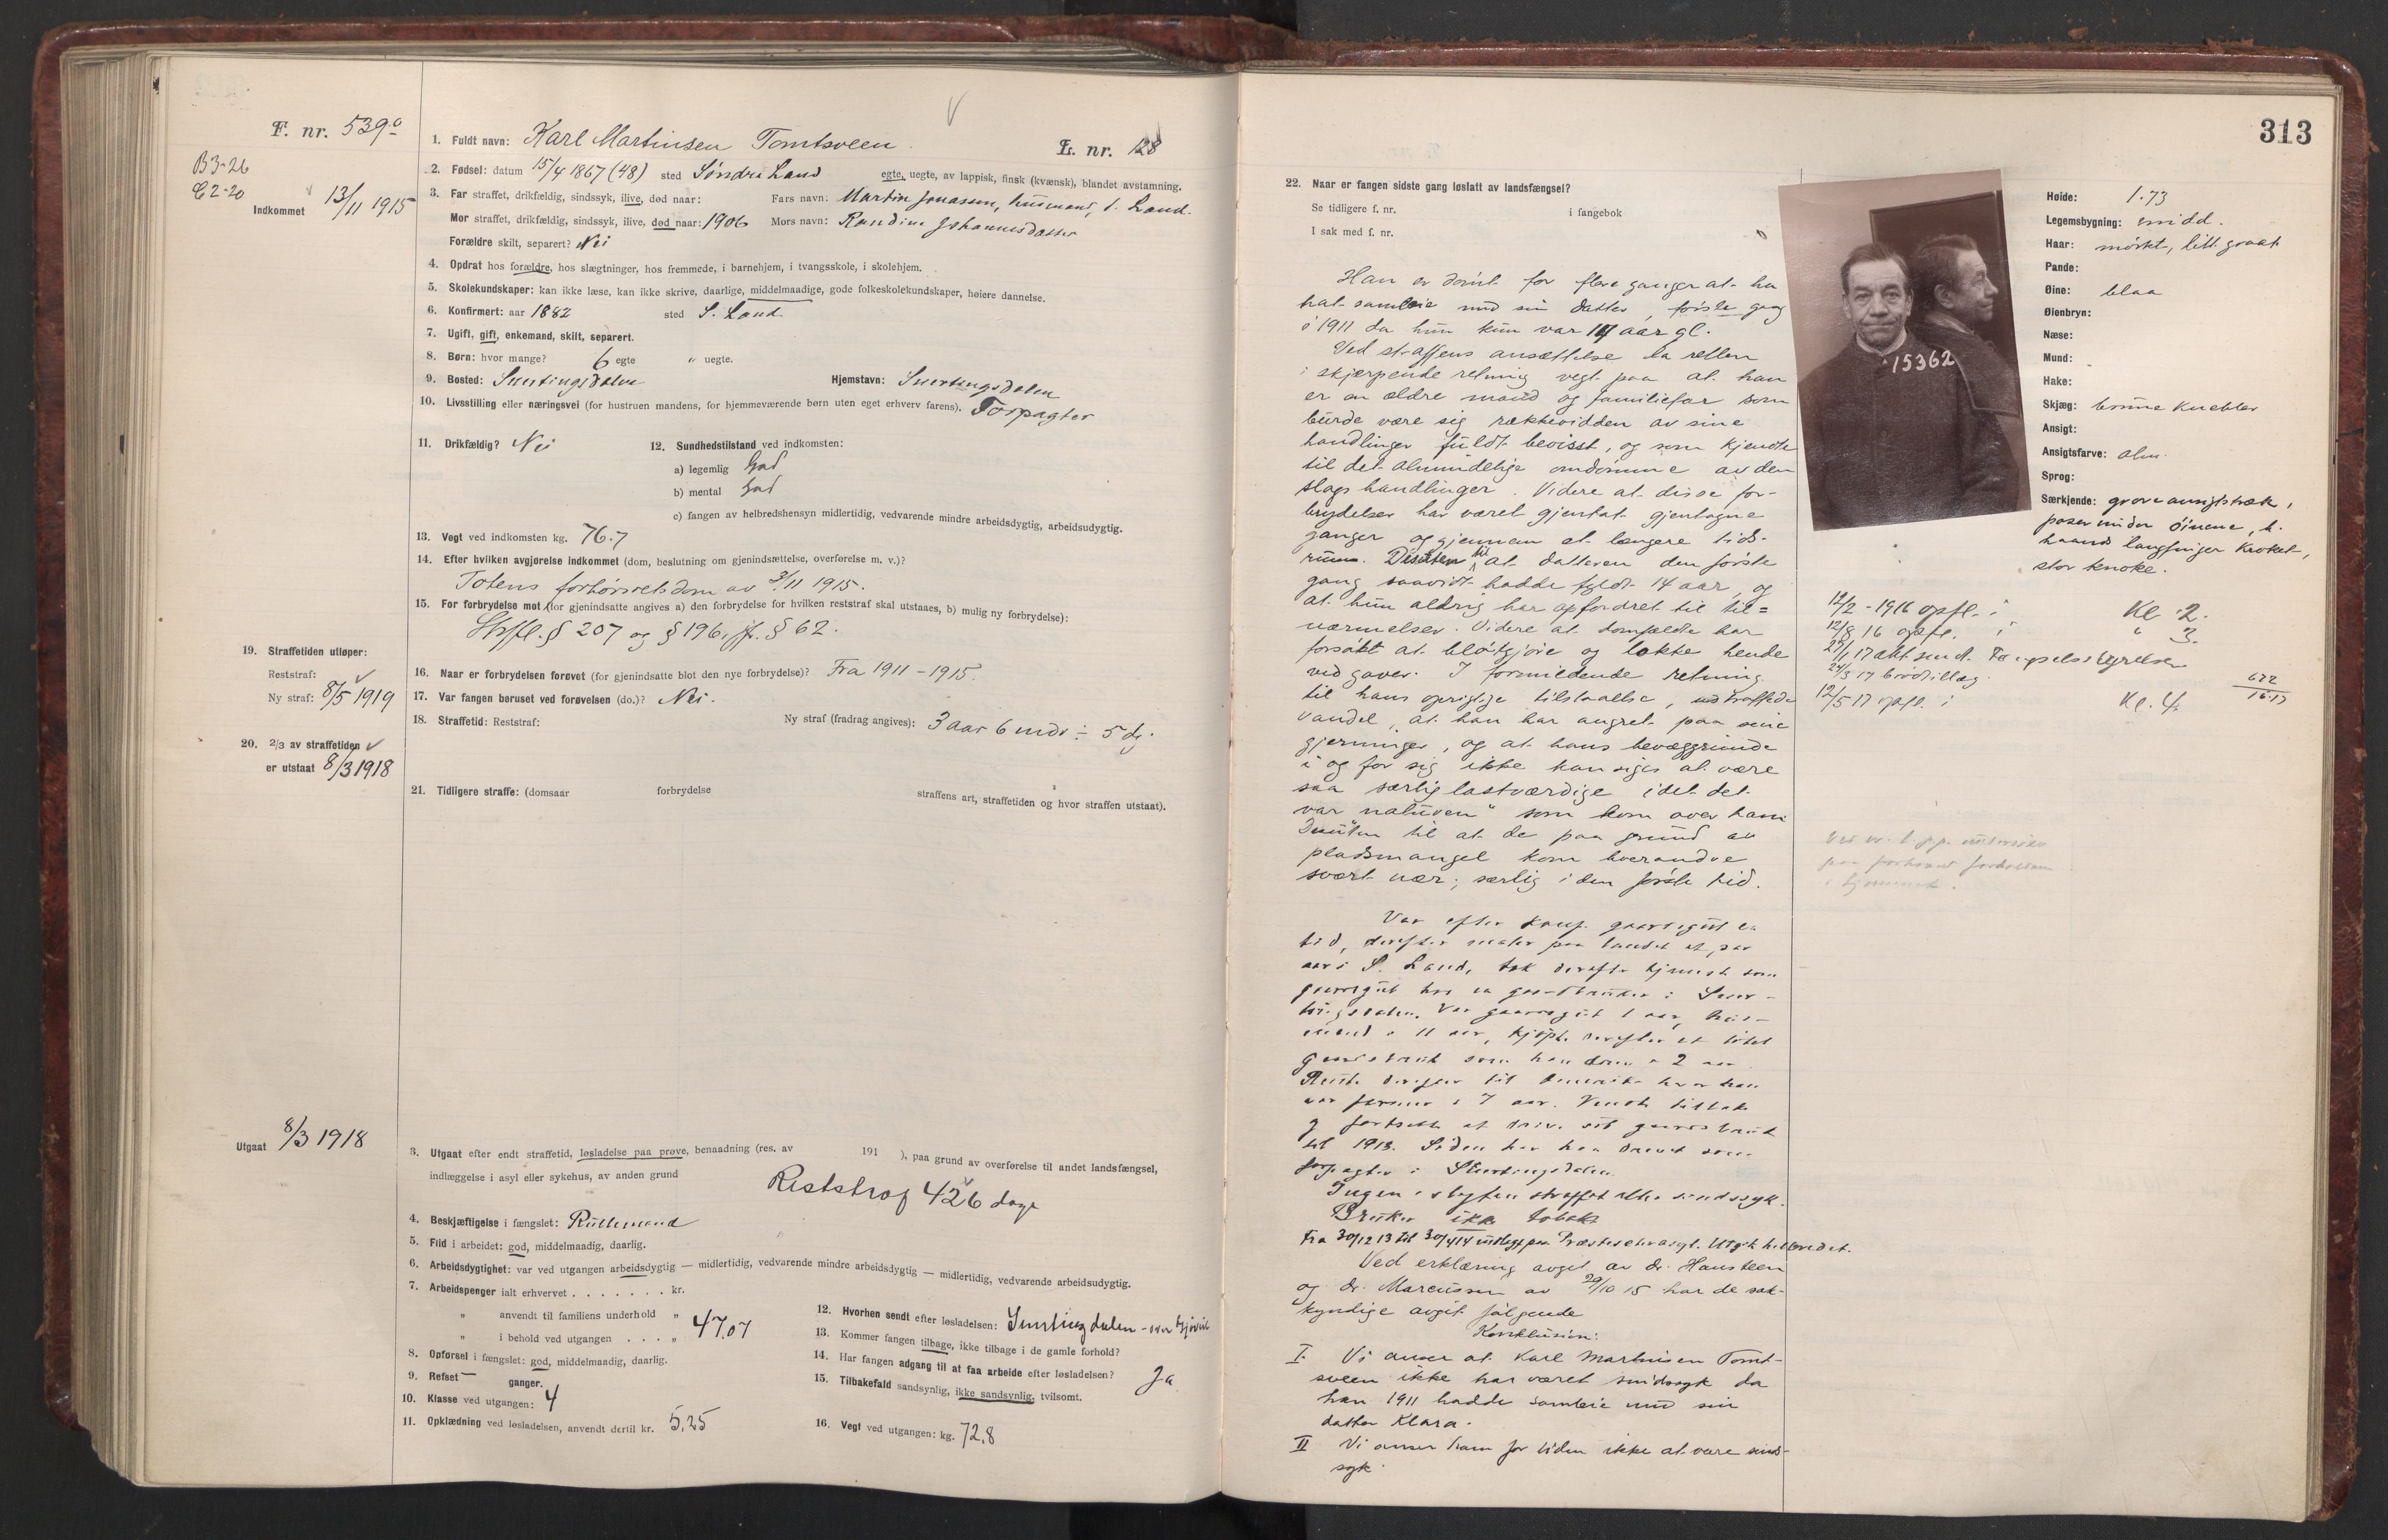 F. nr. 539a
B3-26
C2-20
Indkommet 13/11 1915
1. Fuldt navn: Karl Martinsen Tomtsveen.
L. nr. 128
2. Fødsel: datum 15/4 1867 (48) sted Søndre Land egte, uegte, av lappisk, finsk (kvænsk), blandet avstamning.
3. Far straffet, drikfældig, sindssyk, ilive, død naar: Fars navn: Martin Jonassen, husmand, S. Land.
Mor straffet, drikfældig, sindssyk, ilive, død naar: 1906 Mors navn: Randine Johannesdatter
Forældre skilt, separert? Nei
4. Opdrat hos forældre, hos slægtninger, hos fremmede, i barnehjem, i tvangsskole, i skolehjem.
5. Skolekundskaper: kan ikke læse, kan ikke skrive, daarlige, middelmaadige, gode folkeskolekundskaper, høiere dannelse.
6. Konfirmert: aar 1882 sted S. Land
7. Ugift, gift, enkemand, skilt, separert.
8. Børn: hvor mange? 6 egte " uegte.
9. Bosted: Snertingsdalen Hjemstavn: Snertingsdalen
10. Livsstilling eller næringsvei (for hustruen mandens, for hjemmeværende børn uten eget erhverv farens). Forpagter
11. Drikfældig? Nei 12. Sundhedstilstand ved indkomsten:
a) legemlig God
b) mental God
c) fangen av helbredshensyn midlertidig, vedvarende mindre arbeidsdygtig, arbeidsudygtig.
13. Vegt ved indkomsten kg. 76.7
14. Efter hvilken avgjørelse indkommet (dom, beslutning om gjenindsættelse, overførelse m. v.)?
Totens forhørsretsdom av 3/11 1915.
15. For forbrydelse mot (for gjenindsatte angives a) den forbrydelse for hvilken reststraf skal utstaaes, b) mulig ny forbrydelse):
Strfl. § 207 og § 196, jf. § 62.
19. Straffetiden utløper:
Reststraf:
Ny straf: 8/5 1919
16. Naar er forbrydelsen forøvet (for gjenindsatte blot den nye forbrydelse)? Fra 1911 - 1915.
17. Var fangen beruset ved forøvelsen (do.)? Nei.
18. Straffetid: Reststraf: Ny straf (fradrag angives): 3 aar 6 mdr ÷ 5 dg.
20. 2/3 av straffetiden
er utstaat 8/3 1918
21. Tidligere straffe: (domsaar forbrydelse straffens art, straffetiden og hvor straffen utstaat).
Utgaat 8/3 1918
3. Utgaat efter endt straffetid, løsladelse paa prøve, benaadning (res. av 191 ), paa grund av overførelse til andet landsfængsel,
indlæggelse i asyl eller sykehus, av anden grund
Reststraf 426 dage
4. Beskjæftigelse i fængslet: Rullemand
5. Flid i arbeidet: god, middelmaadig, daarlig.
6. Arbeidsdygtighet: var ved utgangen arbeidsdygtig — midlertidig, vedvarende mindre arbeidsdygtig — midlertidig, vedvarende arbeidsudygtig.
7. Arbeidspenger ialt erhvervet . . . . . . . kr.
" anvendt til familiens underhold "
" i behold ved utgangen . . . " 47,07
8. Opførsel i fængslet: god, middelmaadig, daarlig.
9. Refset — ganger.
10. Klasse ved utgangen: 4
11. Opklædning ved løsladelsen, anvendt dertil kr. 5,25
12. Hvorhen sendt efter løsladelsen: Snertingdalen - over Gjøvik
13. Kommer fangen tilbage, ikke tilbage i de gamle forhold?
14. Har fangen adgang til at faa arbeide efter løsladelsen? Ja
15. Tilbakefald sandsynlig, ikke sandsynlig, tvilsomt.
16. Vegt ved utgangen: kg. 72,8
313
22. Naar er fangen sidste gang løslatt av landsfængsel?
Se tidligere f. nr. i fangebok
I sak med f. nr.
Han er dømt for flere ganger at ha
hat samleie med sin datter, første gang
i 1911 da hun kun var 14 aar gl.
Ved straffens ansættelse la retten
i skjærpende retning vegt paa at han
er en ældre mand og familiefar som
burde være sig rækkevidden av sine
handlinger fuldt bevisst, og som kjendte
til det almindelige omdømme av den
slags handlinger. Videre at disse for-
brydelser har været gjentat gjentagne
ganger og gjennem et længere tids-
rum. Desuten til at datteren den første
gang saavidt hadde fyldt 14 aar, og
at hun aldrig har opfordret til til=
nærmelser. Videre at domfældte har
forsøkt at bløtgjøre og lokke hende
ved gaver. I formildende retning
til hans oprigtige tilstaaelse, ustraffede
vandel, at han har angret paa sine
gjerninger, og at hans bevæggrunde
i og for sig ikke kan siges at være
saa særlig lastværdige idet det
var naturen" som kom over ham
Desuten til at de paa grund av
pladsmangel kom hverandre
svært nær, særlig i den første tid.
Var efter konf. gaardsgut en
tid, derefter maler paa landet et par
aar i S. Land, tok derefter tjeneste som
gaardsgut hos en gaardbruker i Sner-
tingsdalen. Var gaardsgut 1 aar, hus-
mand i 11 aar, kjøpte derefter et litet
gaardsbruk som han drev i 2 aar
Reiste derefter til Amerika hvor han
var farmer i 7 aar. Vendte tilbake
og fortsatte at drive sit gaardsbruk
til 1913. Siden har han drevet som
forpagter i Snertingsdalen.
Ingen i slegten straffet eller sindssyk.
Bruker ikke tobak
Fra 30/12 13 til 30/4 14 indlagt paa Præsteseter asyl. Utgik helbredet.
Ved erklæring avgit av dr. Hansteen
og dr. Marcussen av 29/10 15 har de sak-
kyndige avgit følgende
Konklusion:
I. Vi anser at Karl Martinsen Tomt-
sveen ikke har været sindssyk da
han 1911 hadde samleie med sin
datter Klara.
II Vi anser ham for tiden ikke at være sinds-
syk
15362
Høide: 1.73
Legemsbygning: midd.
Haar: mørket, litt graat
Pande:
Øine: blaa
Øienbryn:
Næse:
Mund:
Hake:
Skjæg: brune knebler
Ansigt:
Ansigtsfarve: alm.
Sprog:
Særkjende: grove ansigtstræk,
poser under øinene, h.
haands langfinger kroket,
stor knoke.
12/2 - 1916 opfl. i Kl 2.
12/8 16 opfl. i " 3.
29/1 17 akt sendt Fængselsstyrelsen
24/3 17 brødtillæg.
12/5 17 opfl. i Kl. 4.
622
16-17